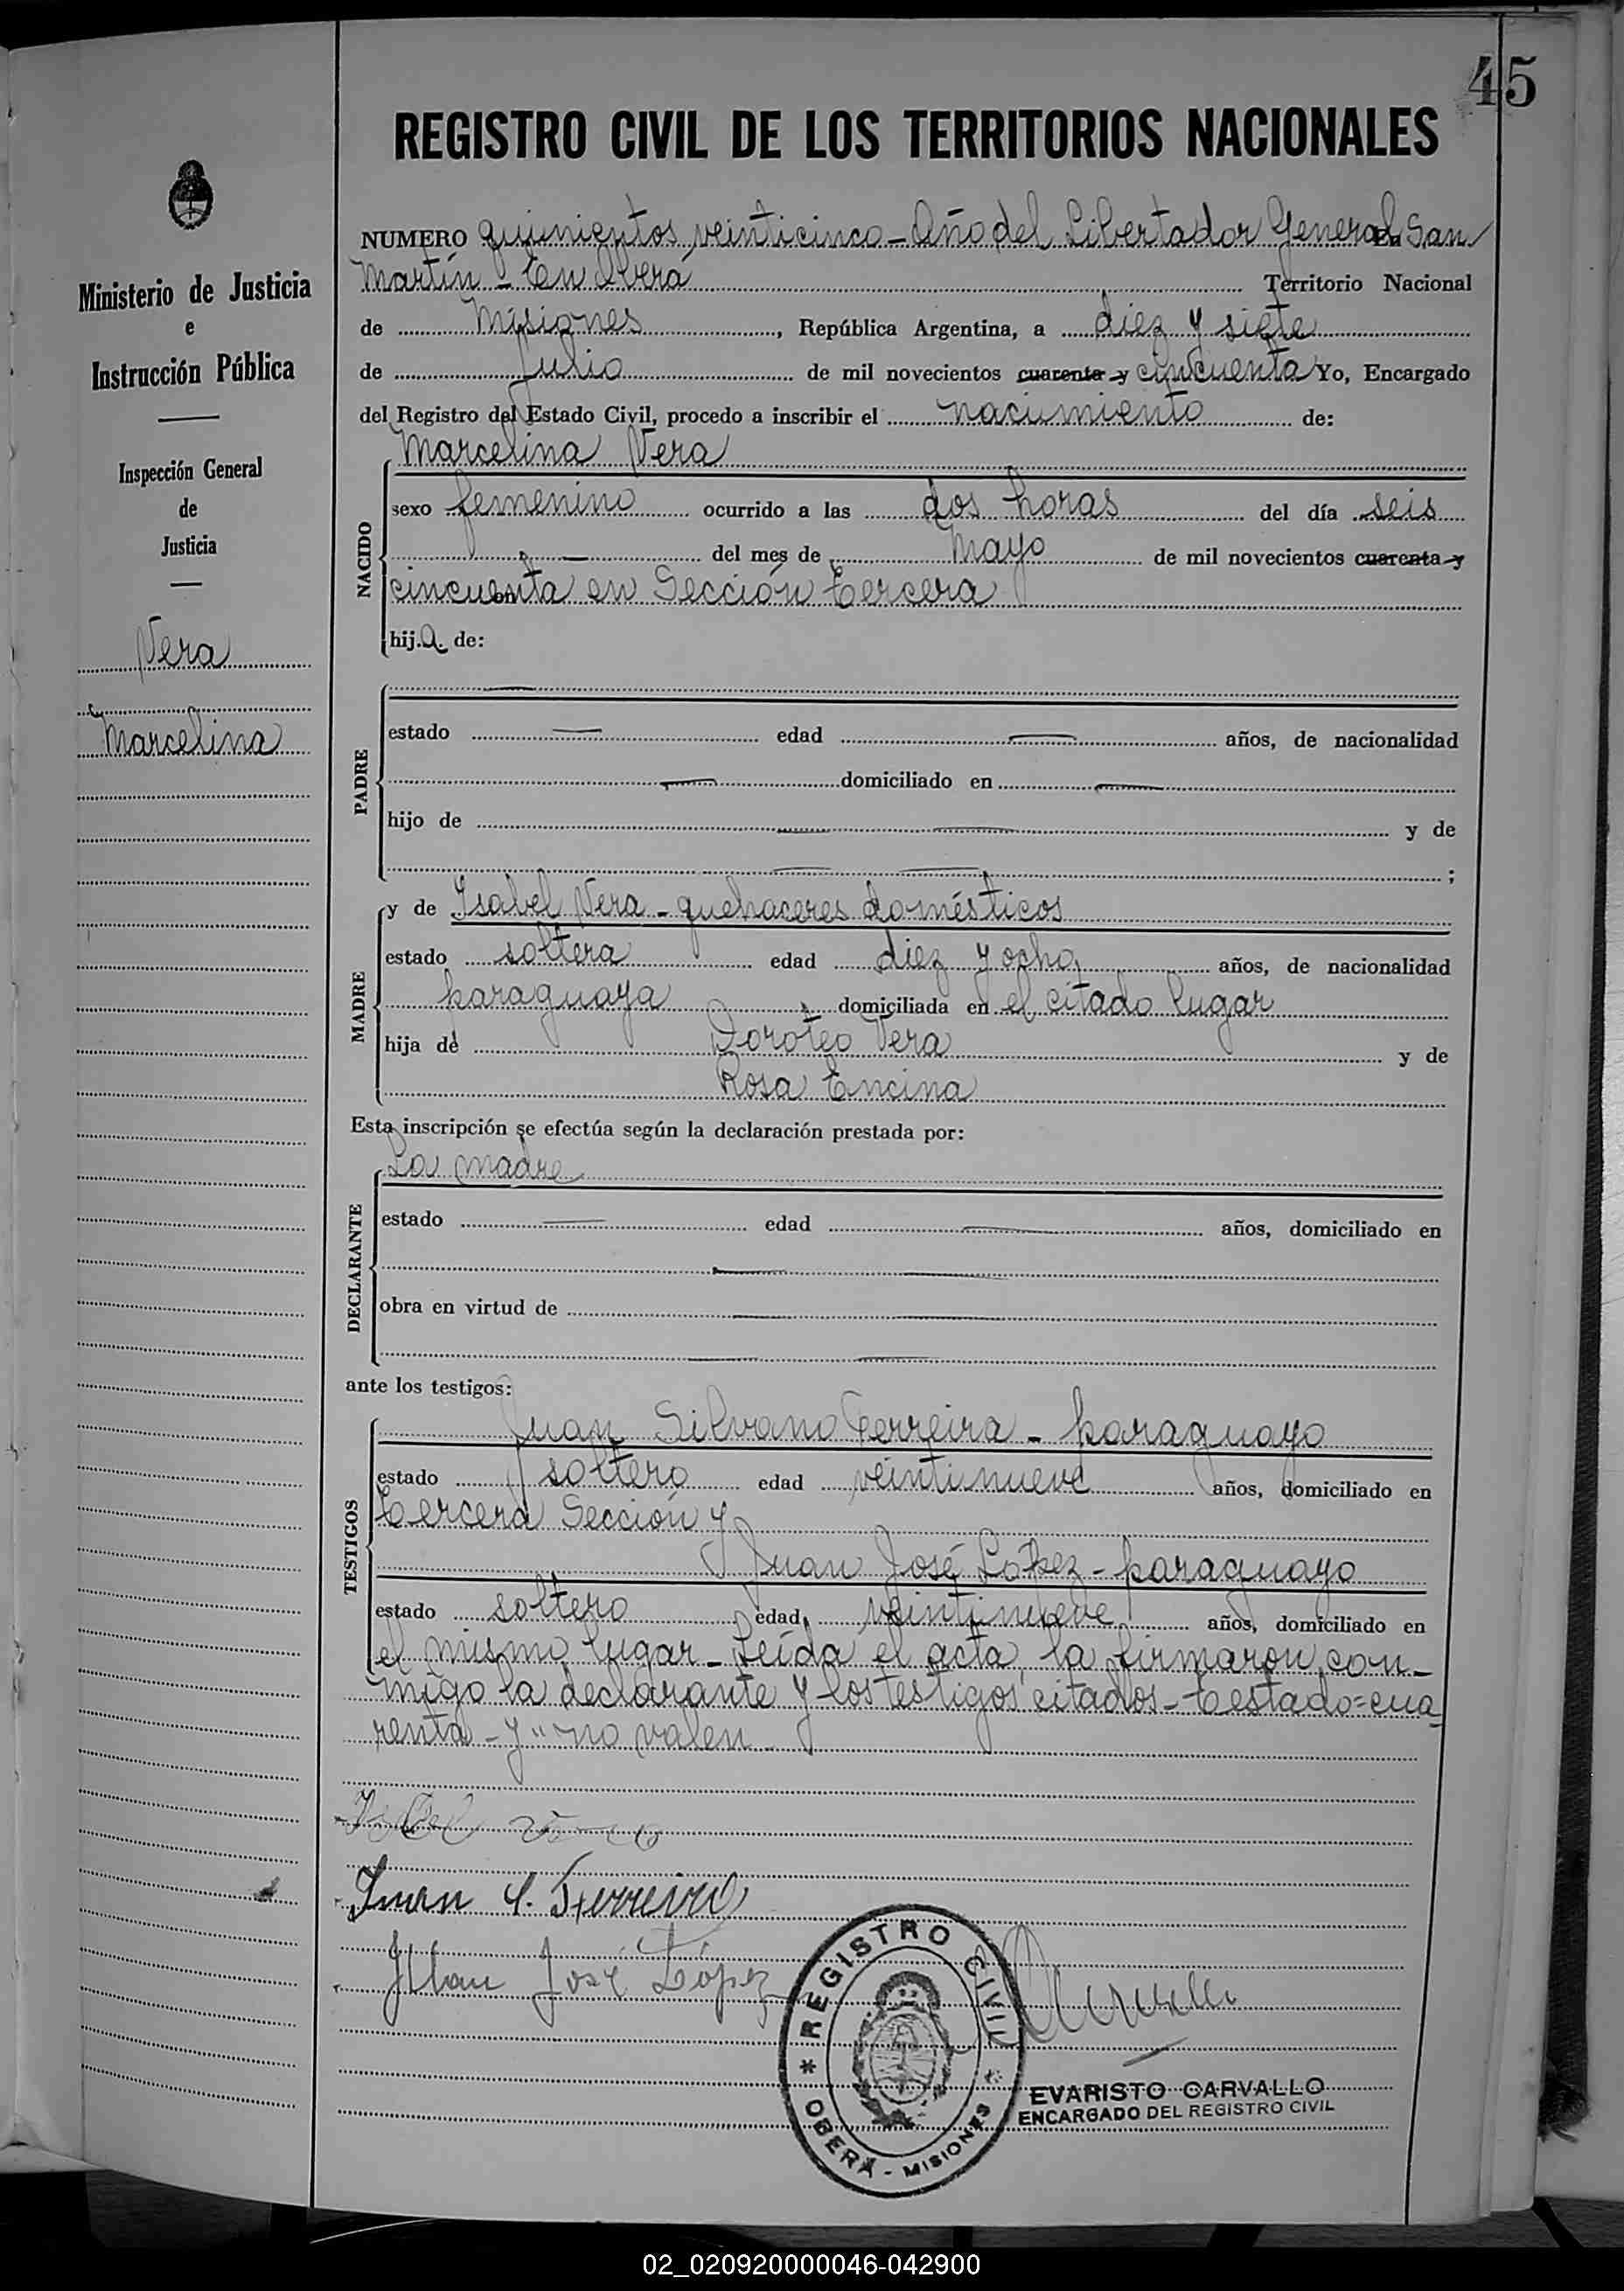 45
REGISTRO CIVIL DE LOS TERRITORIOS NACIONALES
Ministerio de Justicia
e
Instrucción Pública
Inspección General
de
Justicia
Vera
Marcelina
NUMERO quinientos veinticinco - Año del Libertador General San
Martín - En Oberá Territorio Nacional
de Misiones, República Argentina, a diez y siete
de Julio de mil novecientos cuarenta y cincuenta Yo, Encargado
del Registro del Estado Civil, procedo a inscribir el nacimiento de:
NACIDO
Marcelina Vera
sexo femenino ocurrido a las dos horas del día seis
del mes de Mayo de mil novecientos cuarenta y
cincuenta en Sección tercera
hij.a. de:
PADRE
estado edad años, de nacionalidad
domiciliado en
hijo de y de
;
MADRE
y de Isabel Vera - quehaceres domésticos
estado soltera edad diez y ocho años, de nacionalidad
paraguaya domiciliada en el citado lugar
hija de Doroteo Vera y de
Rosa Encina
Esta inscripción se efectúa según la declaración prestada por:
DECLARANTE
La madre
estado edad años, domiciliado en
obra en virtud de
ante los testigos:
TESTIGOS
Juan Silvano Ferreira - paraguayo
estado soltero edad veintinueve años, domiciliado en
tercera Sección y
Juan José López - paraguayo
estado soltero edad veintinueve años, domiciliado en
el mismo lugar - Leída el acta, la firmaron con-
migo la declarante y los testigos citados - testado = cua
renta - y" no valen -
Juan S. Ferreira
Juan José López
REGISTRO CIVIL
OBERÁ - MISIONES
EVARISTO CARVALLO
ENCARGADO DEL REGISTRO CIVIL
02_020920000046-042900